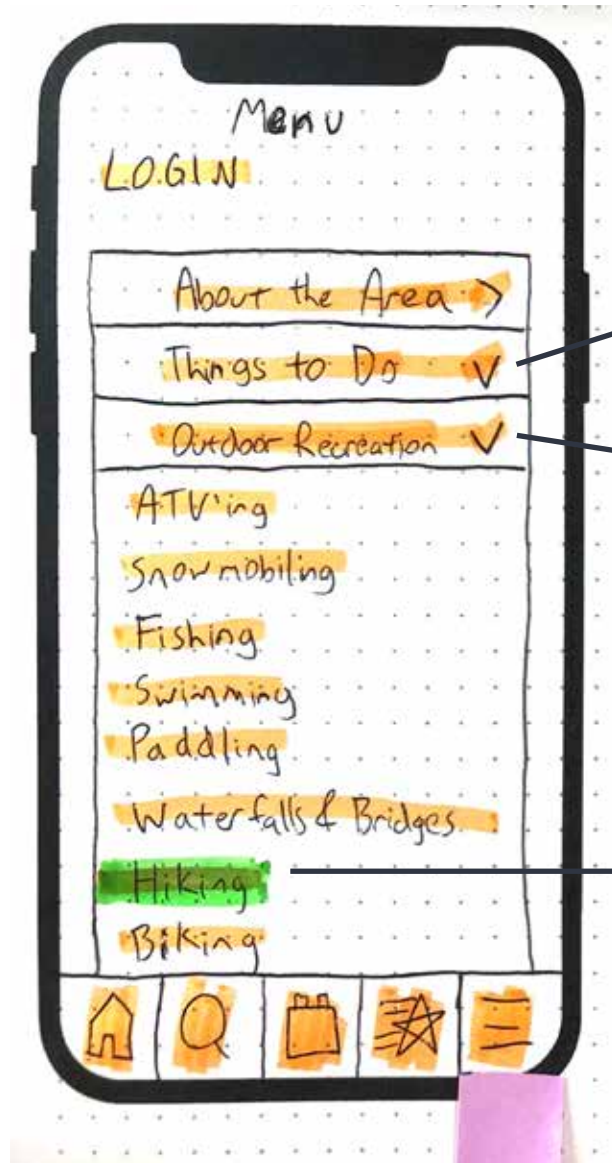 Menu
LOGIN
About the Area >
Things to Do ∨
Outdoor Recreation ∨
ATV'ing
Snowmobiling
Fishing
Swimming
Paddling
Waterfalls & Bridges
Hiking
Biking